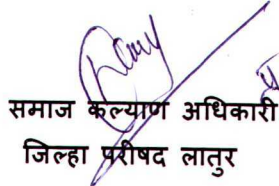 समाज कल्याण अधिकारी
जिल्हा परीषद लातुर